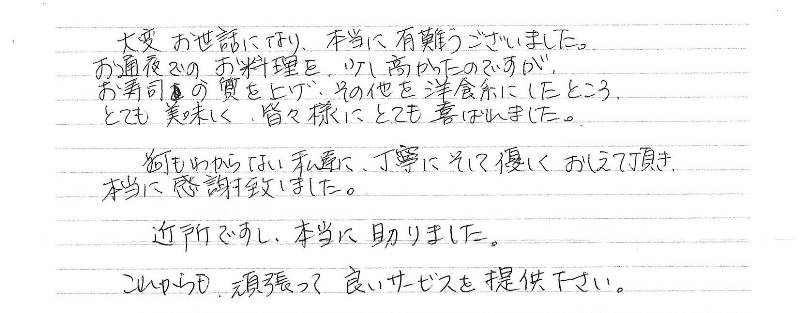 大変 お世話になり、本当に有難うございました。
お通夜でのお料理を、少し高かったのですが、
お寿司の質を上げ、その他を洋食系にしたところ、
とても美味しく、皆々様にとても喜ばれました。
何もわからない私達に、丁寧にそして優しくおしえて頂き、
本当に感謝致しました。
近所ですし、本当に助りました。
これからも、頑張って良いサービスを提供下さい。